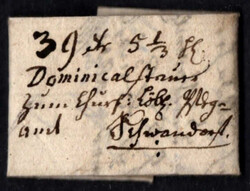 39 xr 5 1/3 hl.
Dominicalsteuer
Zum Churf: Löbl. Pfleg=
amt Schwandorf.